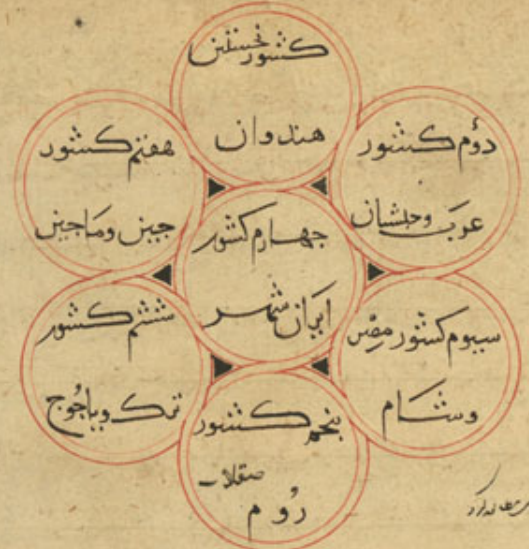 کشور نخستین
هندوان
دؤم کشور
عرب وحبشان
سیوم کشور مصر
وشام
جهارم کشور
ایران شهر
بنجم کشور
صقلاب
رُوم
ششم کشور
ترک ویاجُوج
هفتم کشور
جین وماجین